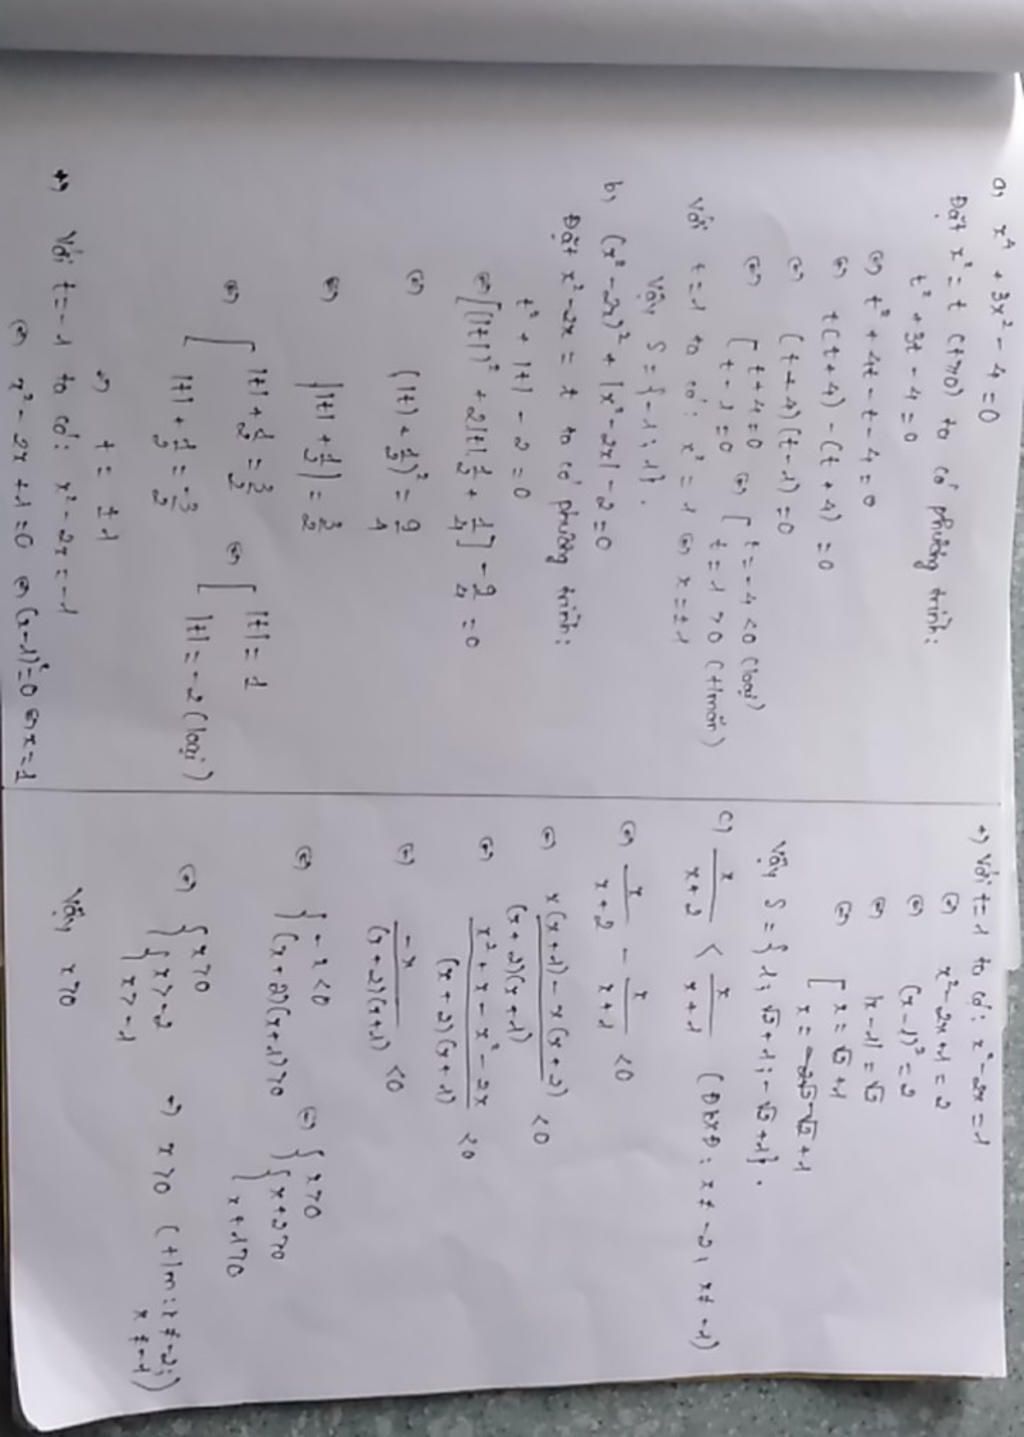 a) x⁴ + 3x² - 4 = 0
Đặt x² = t (t≥0) ta có phương trình:
t² + 3t - 4 = 0
⇔ t² + 4t - t - 4 = 0
⇔ t(t+4) - (t+4) = 0
⇔ (t+4)(t-1) = 0
⇔ [ t+4=0 ⇔ [ t = -4 < 0 (loại)
t-1=0 t = 1 > 0 (t/mãn)
Với t=1 ta có: x² = 1 ⇔ x = ±1
Vậy S = {-1; 1}.
b) (x² - 2x)² + |x² - 2x| - 2 = 0
Đặt x² - 2x = t ta có phương trình:
t² + |t| - 2 = 0
⇔ [(|t|)² + 2|t|.1/2 + 1/4] - 9/4 = 0
⇔ (|t| + 1/2)² = 9/4
⇔ ||t| + 1/2| = 3/2
⇔ [ |t| + 1/2 = 3/2 ⇔ [ |t| = 1
|t| + 1/2 = -3/2 |t| = -2 (loại)
⇔ t = ±1
+) Với t = -1 ta có: x² - 2x = -1
⇔ x² - 2x + 1 = 0 ⇔ (x-1)² = 0 ⇔ x = 1
+) Với t=1 ta có: x² - 2x = 1
⇔ x² - 2x + 1 = 2
⇔ (x-1)² = 2
⇔ |x-1| = √2
⇔ [ x = √2 + 1
x = -√2 + 1
Vậy S = {1; √2+1; -√2+1}.
c) x/(x+2) < x/(x+1) (ĐKXĐ: x ≠ -2, x ≠ -1)
⇔ x/(x+2) - x/(x+1) < 0
⇔ (x(x+1) - x(x+2))/((x+2)(x+1)) < 0
⇔ (x² + x - x² - 2x)/((x+2)(x+1)) < 0
⇔ -x/((x+2)(x+1)) < 0
⇔ { -x < 0 ⇔ { x > 0
(x+2)(x+1) > 0 { x+2 > 0
x+1 > 0
⇔ { x > 0
{ x > -2 ⇒ x > 0 (t/m: x ≠ -2;
x > -1 x ≠ -1)
Vậy x > 0